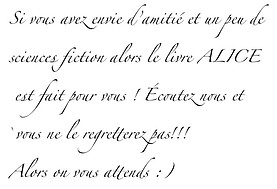 Si vous avez envie d'amitié et un peu de
sciences fiction alors le livre ALICE
est fait pour vous ! Écoutez nous et
`vous ne le regretterez pas!!!
Alors on vous attends : )